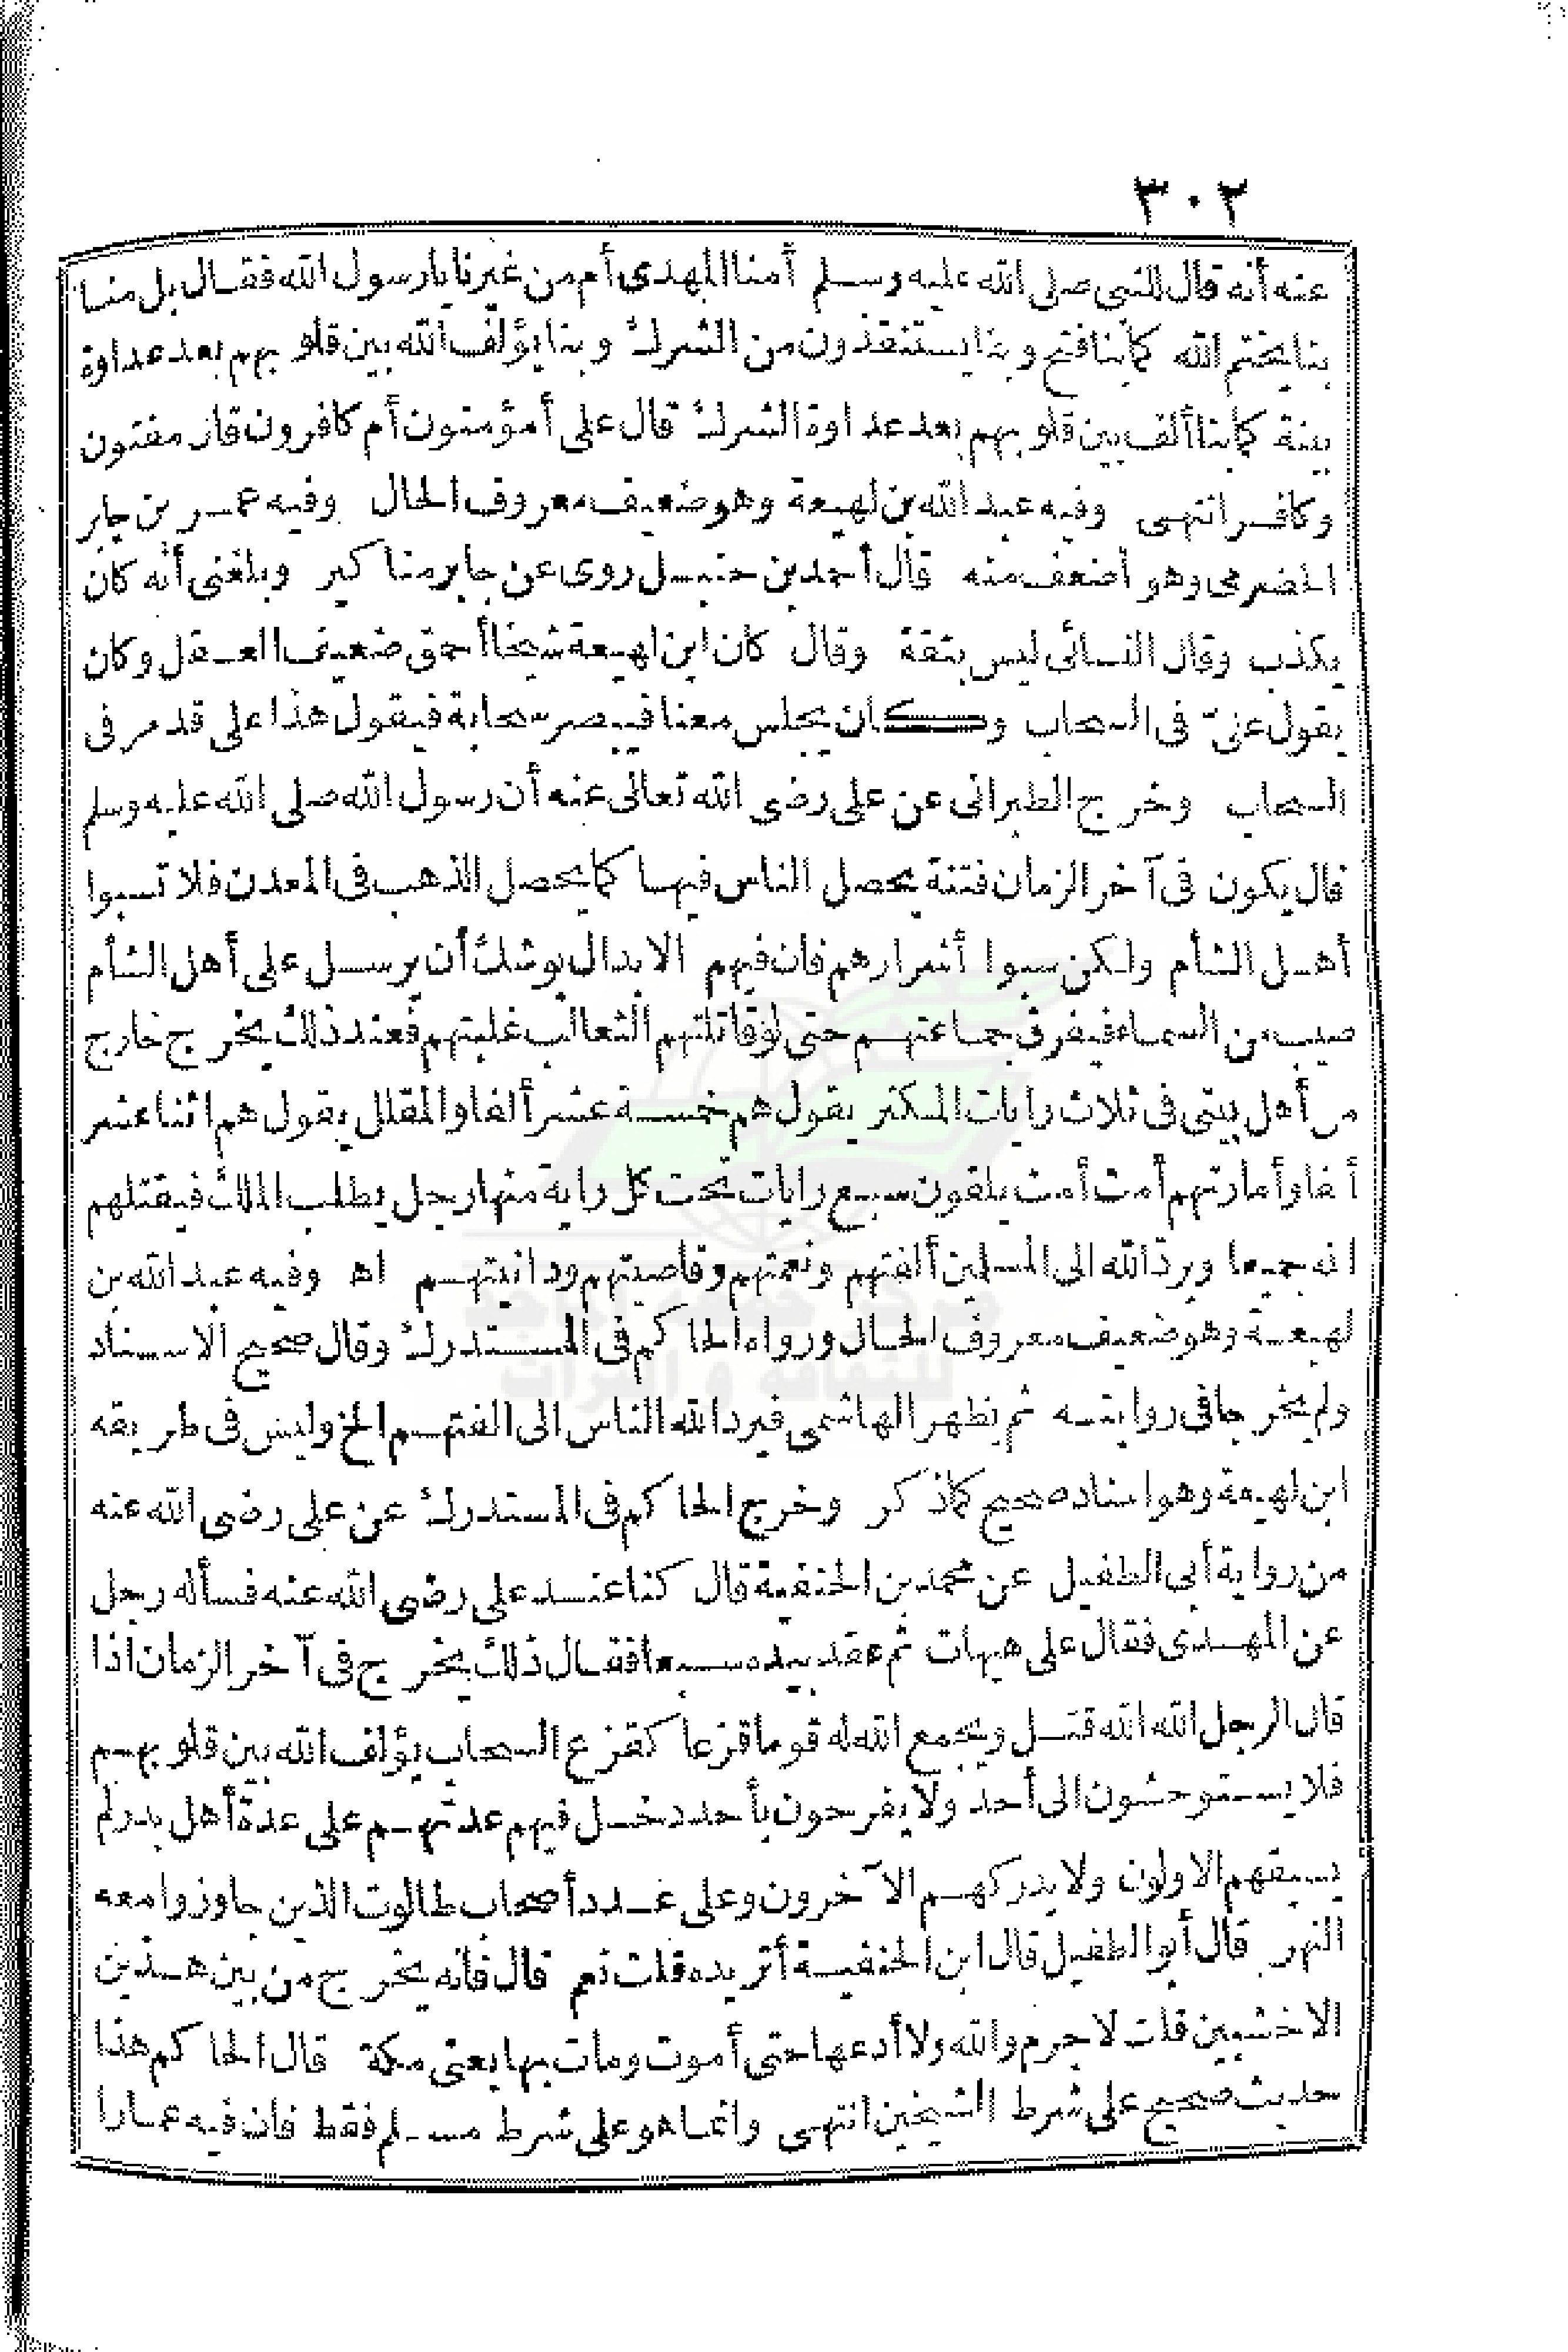 ٣٠٢
عنه أنه قال للنبي صلى الله عليه وسلم أمنا المهدى أم من غيرنا يا رسول الله فقال بل منا
بنا يختم الله كما بنا فتح وبنا يستنقذون من الشرك وبنا يؤلف الله بين قلوبهم بعد عداوة
بينة كما بنا ألف بين قلوبهم بعد عداوة الشرك قال على أمؤمنون أم كافرون قال مفتون
وكافر انتهى وفيه عبد الله بن لهيعة وهو ضعيف معروف الحال وفيه عمر بن جابر
الحضرمى وهو أضعف منه قال أحمد بن حنبل روى عن جابر مناكير وبلغنى أنه كان
يكذب وقال النسائى ليس بثقة وقال كان ابن لهيعة شيخا أحمق ضعيف العقل وكان
يقول علىّ فى السحاب وكان يجلس معنا فيبصر سحابة فيقول هذا على قد مر فى
السحاب وخرج الطبرانى عن على رضى الله تعالى عنه أن رسول الله صلى الله عليه وسلم
قال يكون فى آخر الزمان فتنة يحصل الناس فيها كما يحصل الذهب فى المعدن فلا تسبوا
أهل الشأم ولكن سبوا أشرارهم فان فيهم الابدال يوشك أن يرسل على أهل الشأم
صيب من السماء فيفرق جماعتهم حتى لو قاتلتهم الثعالب غلبتهم فعند ذلك يخرج خارج
من أهل بيتى فى ثلاث رايات المكثر يقول هم خمسة عشر ألفا والمقلل يقول هم اثنا عشر
ألفا وأمارتهم أمت أمت يلقون سبع رايات تحت كل راية منها رجل يطلب الملك فيقتلهم
الله جميعا ويردّ الله الى المسلمين ألفتهم ونعمتهم وقاصيتهم ودانيتهم اه وفيه عبد الله بن
لهيعة وهو ضعيف معروف الحال ورواه الحاكم فى المستدرك وقال صحيح الاسناد
ولم يخرجا فى روايته ثم يظهر الهاشمى فيرد الله الناس الى الفتهم الخ وليس فى طريقه
ابن لهيعة وهو اسناد صحيح كما ذكر وخرج الحاكم فى المستدرك عن على رضى الله عنه
من رواية أبى الطفيل عن محمد بن الحنفية قال كنا عند على رضى الله عنه فسأله رجل
عن المهدى فقال على هيهات ثم عقد بيده سبعا فقال ذلك يخرج فى آخر الزمان اذا
قال الرجل الله الله قتل ويجمع الله له قوما قزعا كقزع السحاب يؤلف الله بين قلوبهم
فلا يستوحشون الى أحد ولا يفرحون بأحد دخل فيهم عدتهم على عدة أهل بدر لم
يسبقهم الاولون ولا يدركهم الآخرون وعلى عدد أصحاب طالوت الذين جاوزوا معه
النهر قال أبو الطفيل قال ابن الحنفية أتريده قلت نعم قال فانه يخرج من بين هذين
الاخشبين قلت لا جرم والله ولا أدعها حتى أموت ومات بها يعنى مكة قال الحاكم هذا
حديث صحيح على شرط الشيخين انتهى وانما هو على شرط مسلم فقط فان فيه عمارا
مركز جمعة الماجد
للثقافة والتراث